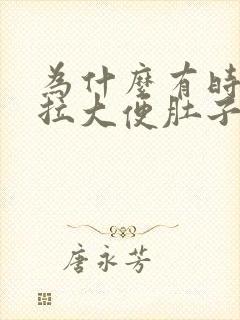 為什麼有時
拉大便肚子
唐永芳